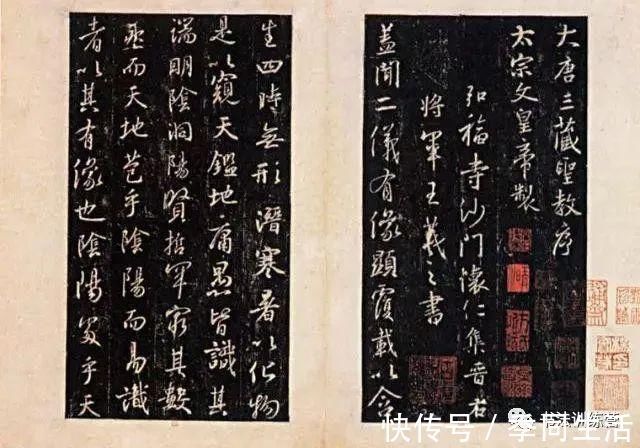 大唐三藏聖教序
太宗文皇帝製
弘福寺沙門懷仁集晉右
將軍王羲之書
蓋聞二儀有像顯覆載以含
生四時無形潛寒暑以化物
是以窺天鑑地庸愚皆識其
端明陰洞陽賢哲罕窮其數
然而天地苞乎陰陽而易識
者以其有像也陰陽處乎天
快传号